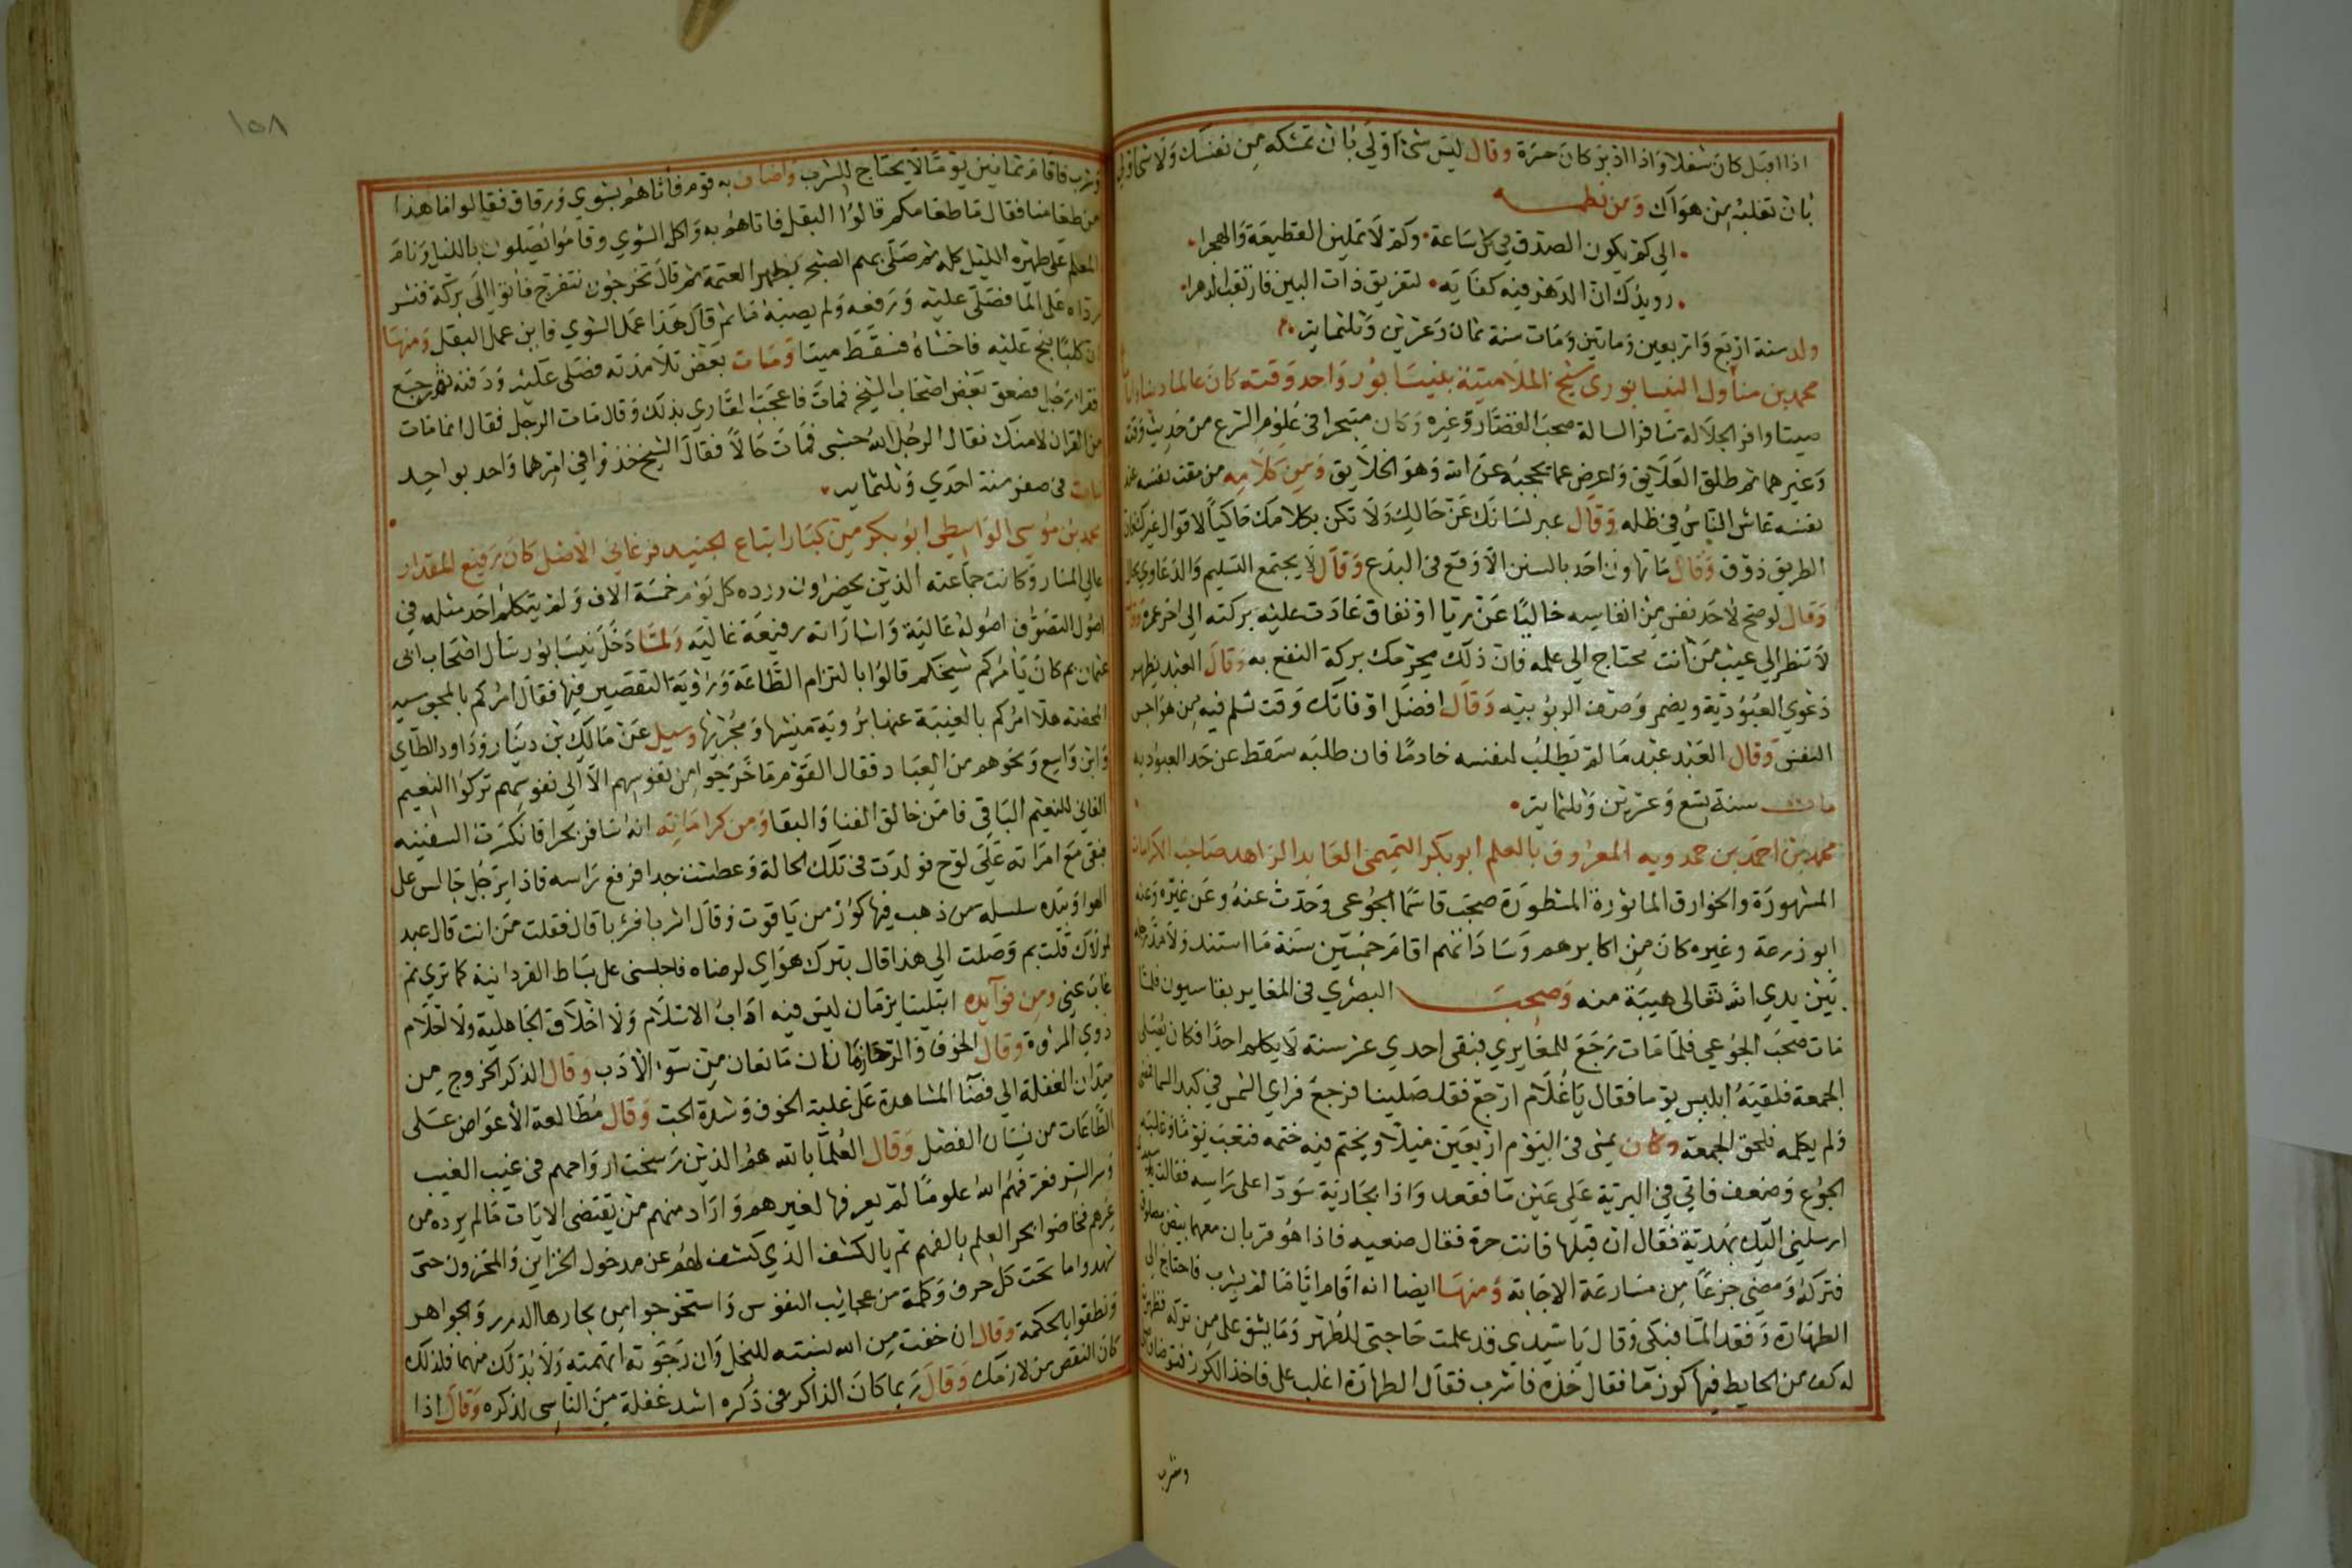 اذا اقبل كان شغلا واذا ادبر كان حسرة وقال ليس شئ اولي بان تمسكه من نفسك ولا شئ اولي
بان تغلبه من هواك ومن نظمه
الي كم يكون الصدق في كل ساعة وكم لا تملين القطيعة والهجرا
رويدك ان الدهر فيه كفاية لتفريق ذات البين فارتقب الدهرا
ولد سنة اربع واربعين ومايتين ومات سنة ثمان وعشرين وثلثماية
محمد بن منأول النيسابوري شيخ الملامتية بنيسابور واحد وقته كان عالما
صيتا وافر الجلالة سافر السالة صحب القصار وغيره وكان متبحرا في علوم الشرع من حديث وفقه
وغيرهما ثم طلق العلايق واعرض عما يحجبه عن الله وهو الخلايق ومن كلامه من مقت نفسه عند
نفسه عاش الناس في ظله وقال عبر لسانك عن حالك ولا تكن بكلامك حاكيا لاقوال غيرك
الطريق ذوق وقال ما تهاون احد بالسنن الا وقع في البدع وقال لا يجتمع التسليم والدعاوي بحال
وقال لو صح لاحد نفس من انفاسه خاليا عن ريا او نفاق عادت عليه بركته الي اخر عمره
لا تنظر الي عيب من انت محتاج الي علمه فان ذلك يحرمك بركة النفع به وقال العبد يظهر
دعوي العبودية ويضمر وصف الربوبيه وقال افضل اوقاتك وقت تسلم فيه من هواجس
النفس وقال العبد عبد ما لم يطلب لنفسه خادما فان طلبه سقط عن حد العبوديه
مات سنة تسع وعشرين وثلثماية
محمد بن احمد بن حمدويه المعروف بالعلم ابو بكر التميمي العابد الزاهد صاحب الكرامات
المشهورة والخوارق الماثورة المسطورة صحب قاسما الجوعي وحدث عنه وعن غيره وعنه
ابو زرعة وغيره كان من اكابرهم وساداتهم اقام خمسين سنة ما استند ولا مد رجله
بين يدي الله تعالى هيبة منه وصحب البصري في المغاير بقاسيون فلما
مات صحب الجوعي فلما مات رجع للمغايري فبقى احدي عشر سنة لا يكلم احدا فكان يصلى
الجمعة فلقيه ابليس يوما فقال يا غلام ارجع فقد صلينا فرجع فراي الشمس في كبد السما فمضى
ولم يكلمه فلحق الجمعة وكان يمشى في اليوم اربعين ميلا ويختم فيه ختمه فتعب يوما وغلبه
الجوع وضعف فاتي في البرية على عين ما فقعد واذا بجارية سودا على راسه فقالت
ارسلني اليك بهدية فقال ان قبلها فانت حرة فقال ضعيه فاذا هو قربان معهما بيض
فتركه ومضى جزعا من مسارعة الاجابة ومنها ايضا انه اقام اياما لم يشرب فاحتاج الي
الطهارة وفقد الما فبكى وقال يا سيدي قد علمت حاجتى للطهر وما يشق على من تركه فظهرت
له كف من الحايط فيها كوز ما فقال خذه فاشرب فقال الطهارة اغلب على فاخذ الكوز فتوضا
وشرب
١٥٨
وشرب فاقام ثمانين يوما لا يحتاج للشرب واضاف به قوم فاتاهم بشوي ورقاق فقالوا ما هذا
من طعامنا فقال ما طعامكم قالوا البقل فاتاهم به واكل الشوي وقاموا يصلون بالليل ونام
المعلم على ظهره الليل كله ثم صلى بهم الصبح بطهر العتمة ثم قال تخرجون نتفرج فاتوا الى بركة فنشر
رداه على الما فصلى عليه ورفعه ولم يصبه ما ثم قال هذا عمل الشوي فاين عمل البقل ومنها
ان كلبا نبح عليه فاخساه فسقط ميتا ومات بعض تلامذته فصلى عليه ودفنه ثم رجع
فقرا رجل فصعق بعض اصحاب الشيخ فمات فاعجب القاري بذلك وقال مات الرجل فقال انما مات
من القران لا منك فقال الرجل الله حسبى فمات حالا فقال الشيخ خذوا في امرهما واحد بواحد
مات فى صفر سنة احدي وثلثماية
محمد بن موسى الواسطي ابو بكر من كبار اتباع الجنيد فرغاني الاصل كان رفيع المقدار
عالي المنار وكانت جماعته الذين يحضرون ورده كل يوم خمسة الاف ولم يتكلم احد مثله في
اصول التصوف اصوله عالية واشاراته رفيعة غاليه ولما دخل نيسابور سأل اصحاب ابي
عثمان بم كان يأمركم شيخكم قالوا بالتزام الطاعة وراوية التقصير فيها فقال امركم بالمجوسيه
المحضة هلا امركم بالغيبة عنها برويه منشيها ومجريها وسيل عن مالك بن دينار وداود الطآي
وابن واسع ونحوهم من العباد فقال القوم ما خرجوا من نفوسهم الا الي نفوسهم تركوا النعيم
الفاني للنعيم الباقي فامن خالق الفنا والبقا ومن كراماته انه سافر بحرا فانكسرت السفينه
فبقى مع امراته على لوح فولدت في تلك الحالة وعطشت جدا فرفع راسه فاذا برجل جالس على
الهوا وبيده سلسله من ذهب فيها كوز من ياقوت وقال اشربا فشربا قال فقلت من انت قال عبد
لمولاك قلت بم وصلت الي هذا قال بترك هواي لرضاه فاجلسنى على بساط الفردانية كما تري ثم
غاب عني ومن فوايده ابتلينا بزمان ليس فيه اداب الاسلام ولا اخلاق الجاهلية ولا احلام
ذوي المروة وقال الخوف والرجا زمامان مانعان من سوء الادب وقال الذكر الخروج من
ميدان الغفلة الي فضا المشاهدة على غلبة الخوف وشدة الحب وقال مطالعة الاعواض على
الطاعات من نسيان الفضل وقال العلما بالله هم الذين رسخت ارواحهم في غيب الغيب
وسر السر فعرفهم الله علوما لم يعرفها لغيرهم واراد منهم من يقتضى الايات ما لم يرده من
غيرهم فخاضوا بحر العلم بالفهم ثم بالكشف الذي كشف لهم عن مدخول الخزاين والمخزون حتى
شهدوا ما تحت كل حرف وكلمة من عجايب النفوس واستخرجوا من بحارها الدرر والجواهر
ونطقوا بالحكمة وقال ان خفت من الله نسبته للبخل وان رجوته اتهمته ولا بد لك منهما فلذلك
كان النقص من لازمك وقال ربما كان الذاكر في ذكره اشد غفلة من الناسى لذكره وقال اذا